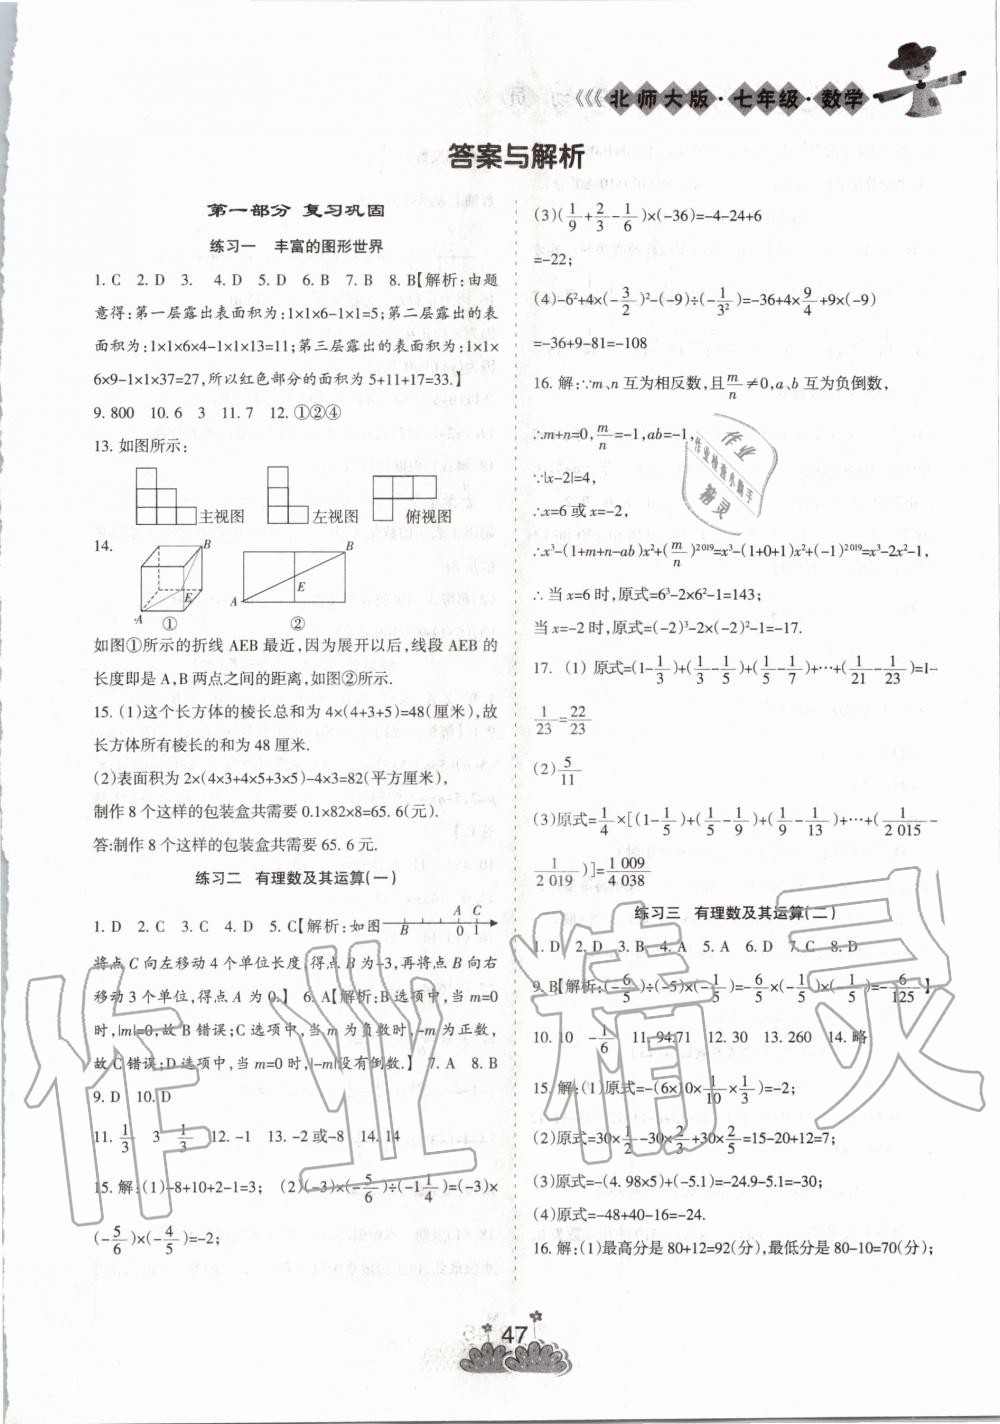 《《《北师大版·七年级·数学
答案与解析
第一部分 复习巩固
练习一 丰富的图形世界
1. C 2. D 3. 4. D 5. D 6. B 7. B 8. B【解析:由题
意得:第一层露出表面积为:1×1×6-1×1=5;第二层露出的表
面积为:1×1×6×4-1×1×13=11;第三层露出的表面积为:1×1×
6×9-1×1×37=27,所以红色部分的面积为 5+11+17=33.】
9. 800 10. 6 3 11. 7 12. ①②④
13. 如图所示:
主视图 左视图 俯视图
14.
B E A ① B E A ②
如图①所示的折线 AEB 最近,因为展开以后,线段 AEB 的
长度即是 A,B 两点之间的距离,如图②所示.
15. (1)这个长方体的棱长总和为 4×(4+3+5)=48(厘米),故
长方体所有棱长的和为 48 厘米.
(2)表面积 2×(4×3+4×5+3×5)-4×3=82(平方厘米),
制作 8 个这样的包装盒共需要 0.1×82×8=65. 6(元).
答:制作 8 个这样的包装盒共需要 65. 6 元.
练习二 有理数及其运算(一)
1. D 2. C 3. C 4. D 5. C【解析:如图 B A C 0 1
将点 C 向左移动 4 个单位长度,得点 B 为-3,再将点 B 向右
移动 3 个单位,得点 A 为 0.】 6. A【解析:B 选项中,当 m=0
时,|m|=0,故 B 错误;C 选项中,当 m 为负数时,-m 为正数,
故 C 错误;D 选项中,当 m=0 时,|-m|没有倒数.】 7. A 8. B
9. D 10. D
11. 1/3 3 1/3 12. -1 13. -2 或-8 14. 14
15. 解:(1)-8+10+2-1=3; (2)(-3)×(-5/6)÷(-1 1/4)=(-3)×
(-5/6)×(-4/5)=-2;
(3)(1/9+2/3-1/6)×(-36)=-4-24+6
=-22;
(4)-6²+4×(-3/2)²-(-9)÷(-1/3²)=-36+4×9/4+9×(-9)
=-36+9-81=-108
16. 解:∵m、n 互为相反数,且m/n≠0,a、b 互为负倒数,
∴m+n=0,m/n=-1,ab=-1,
∵|x-2|=4,
∴x=6 或 x=-2,
∴x³-(1+m+n-ab)x²+(m/n)²⁰¹⁹=x³-(1+0+1)x²+(-1)²⁰¹⁹=x³-2x²-1,
∴当 x=6 时,原式=6³-2×6²-1=143;
当 x=-2 时,原式=(-2)³-2×(-2)²-1=-17.
17. (1) 原式=(1-1/3)+(1/3-1/5)+(1/5-1/7)+…+(1/21-1/23)=1-
1/23=22/23
(2)5/11
(3)原式=1/4×[(1-1/5)+(1/5-1/9)+(1/9-1/13)+…+(1/2 015-
1/2 019)]=1 009/4 038
练习三 有理数及其运算(二)
1. D 2. D 3. B 4. A 5. A 6. D 7. C 8. D
9. B【解析:(-6/5)÷(-5)×(-1/5)=-6/5×(-1/5)×(-1/5)=-6/125】
10. 10 -1/6 11. -94.71 12. 30 13. 260 14. 略
15. 解:(1)原式=-(6×10×1/10×1/3)=-2;
(2)原式=30×1/2-30×2/3+30×2/5=15-20+12=7;
(3)原式=-(4. 98×5)+(-5.1)=-24.9-5.1=-30;
(4)原式=-48+40-16=-24.
16. 解:(1)最高分是 80+12=92(分),最低分是 80-10=70(分);
47
作业
作业检查小助手
精灵
作业精灵